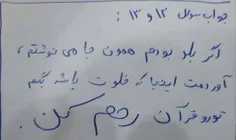 جواب سوال ۱۲ و ۱۳ :
اگر بلد بودم همون جا می نوشتم ،
آوردمت اینجا که خلوت باشه بگم
تورو قرآن رحم کن .